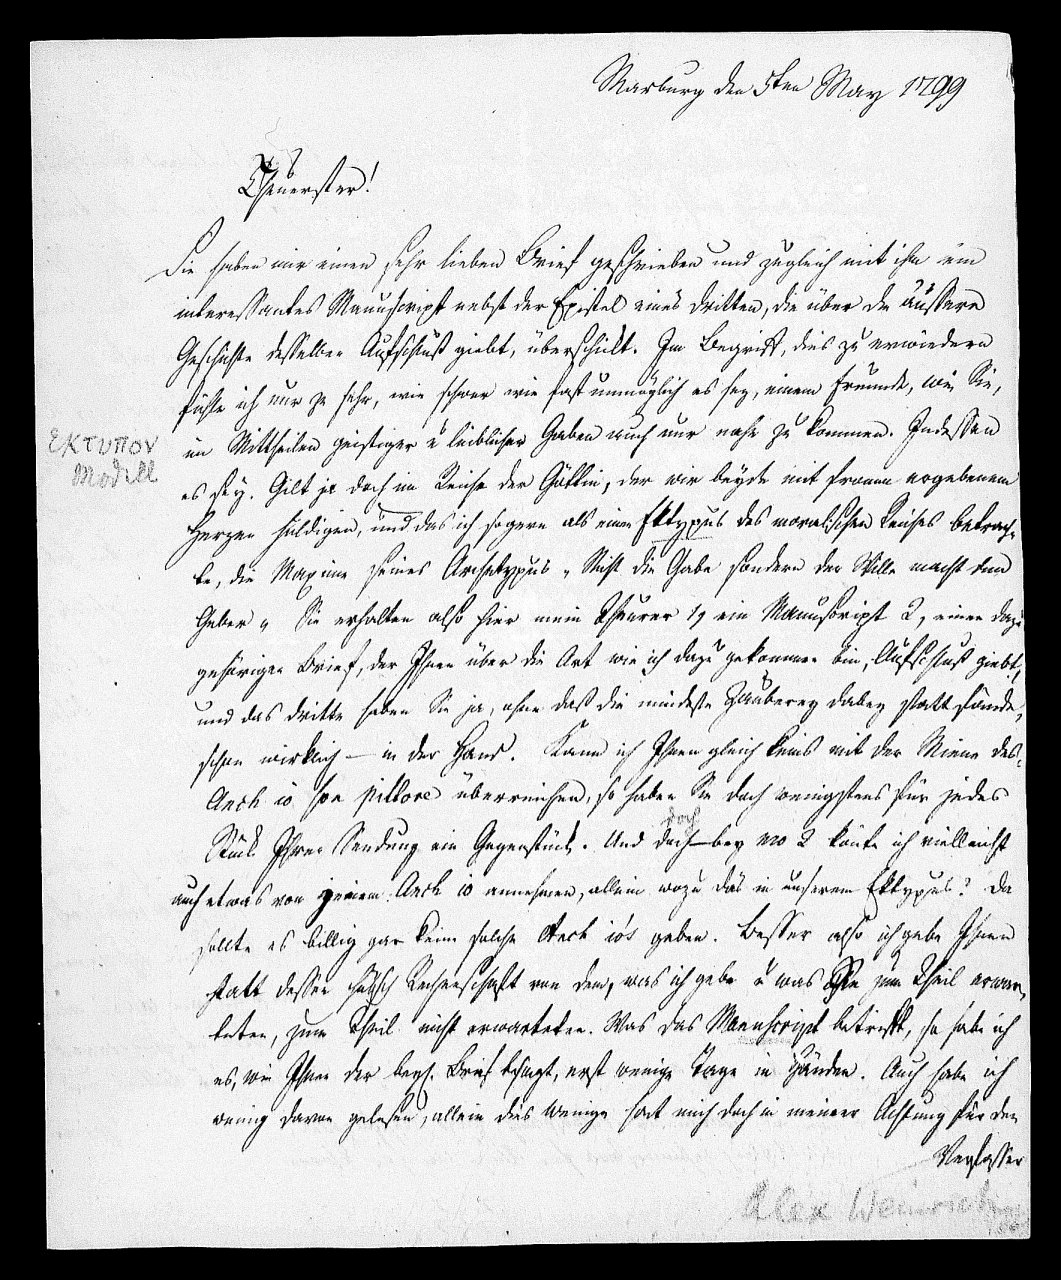 Marburg den 5ten May 1799
Theuerster!
Sie haben mir einen sehr lieben Brief geschrieben und zugleich mit ihm ein
interessantes Manuscript nebst der Epistel eines dritten, die über die äussere
Geschichte desselben Aufschluß giebt, überschickt. Im Begriff, dies zu erwiedern
fühle ich nur zu sehr, wie schwer wie fast unmöglich es sey, einem Freunde, wie Sie,
im Mittheilen geistiger u leiblicher Gaben auch nur nahe zu kommen. Indessen
εκτυπον
Modell
es sey. Gilt ja doch im Reiche der Göttin, der wir beyde mit fromm ergebenem
Herzen huldigen, und das ich so gern als einen Ektypus des moralischen Reiches betrach-
te, die Maxime seines Archetypus „Nicht die Gabe sondern der Wille macht den
Geber" Sie erhalten also hier mein Theurer 1, ein Manuscript 2, einen dazu
gehörigen Brief, der Ihnen über die Art wie ich dazu gekommen bin, Aufschluß giebt,
und das dritte haben Sie ja, ohne daß die mindeste Zauberey dabey statt fände,
schon wirklich – in der Hand. Kann ich Ihnen gleich keins mit der Miene des
Anch io son pittore überreichen, so haben Sie doch wenigstens für jedes
Stück Ihrer Sendung ein Gegenstück. Und doch – bey no 2 könte ich vielleicht
doch
auch etwas von jenem Anch io annehmen, allein wozu das in unserem Ektypus? Da
sollte es billig gar keine solche Anch io's geben. Besser also ich gebe Ihnen
statt dessen hübsch Rechenschaft von dem, was ich gebe u was Sie zum Theil erwar-
teten, zum Theil nicht erwarteten. Was das Manuscript betrifft, so habe ich
es, wie Ihnen der beyl. Brief besagt, erst wenige Tage in Händen. Auch habe ich
wenig davon gelesen, allein dies Wenige hat mich doch in meiner Achtung für den
Verfasser
Alex Weinrich